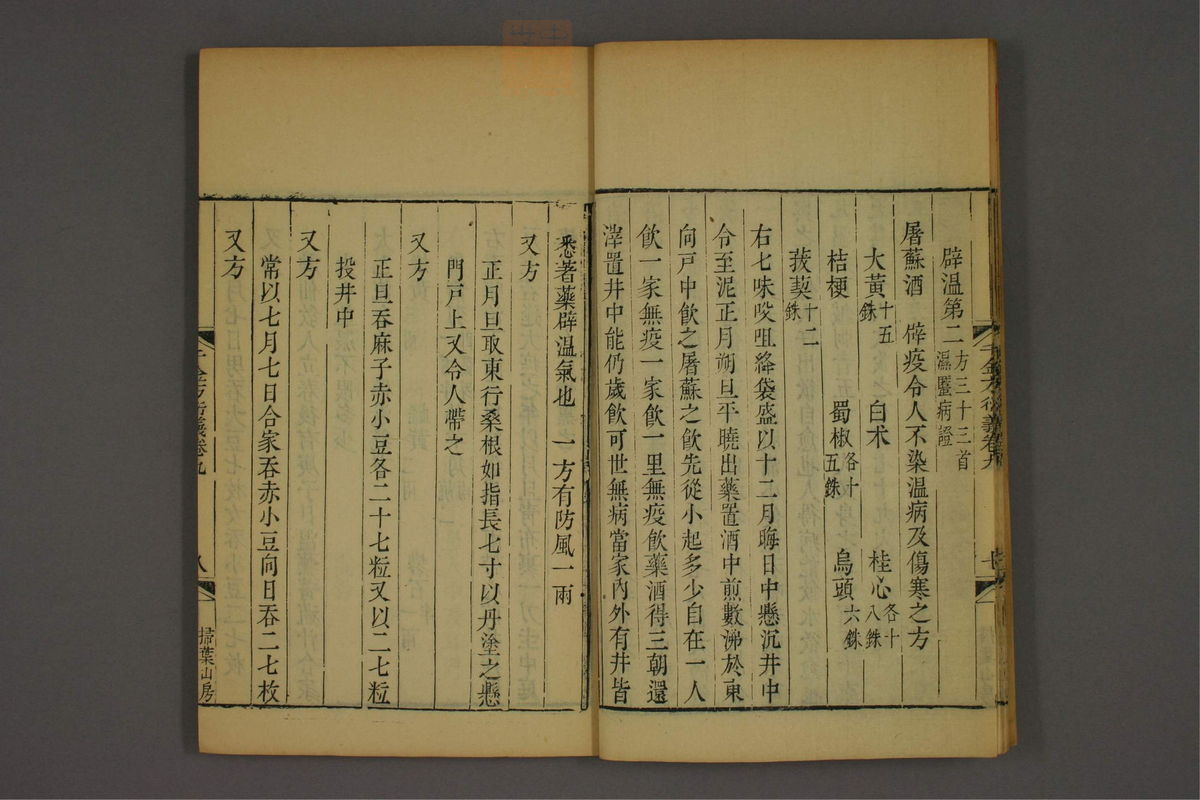 辟温第二方三十三首
瀉𧏾病證
屠蘇酒　辟疫令人不染温病及傷寒之方
大黃十五銖　白术　桂心各十八銖
桔梗　蜀椒各十五銖　烏頭六銖
菝葜十二銖
右七味㕮咀絳袋盛以十二月晦日中懸沉井中
令至泥正月朔旦平曉出藥置酒中煎數沸於東
向戸中飲之屠蘇之飲先從小起多少自在一人
飲一家無疫一家飲一里無疫飲藥酒得三朝還
滓置井中能仍歲飲可世無病當家內外有井皆
悉著藥辟温氣也　一方有防風一兩
又方
正月旦取東行桑根如指長七寸以丹塗之懸
門戸上又令人帶之
又方
正旦吞麻子赤小豆各二十七粒又以二七粒
投井中
又方
常以七月七日合家吞赤小豆向日吞二七枚
又方
千金方衍義卷九
八
掃葉山房